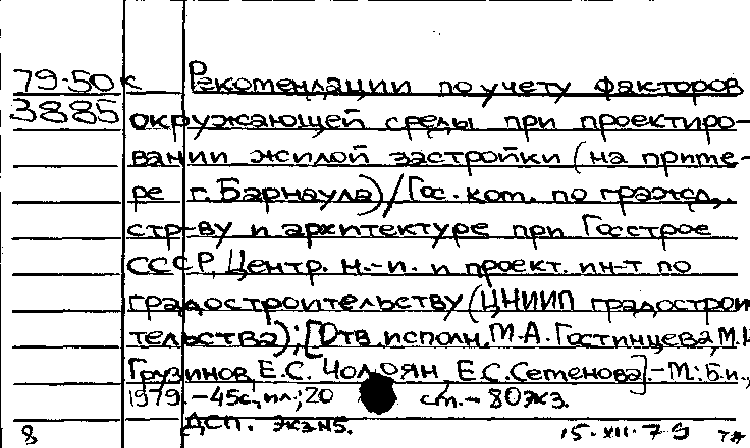 79-50к Рекомендации по учету факторов
3885 окружающей среды при проектиро-
вании жилой застройки (на приме-
ре г. Барнаула)/Гос. ком. по гражд.
стр-ву и архитектуре при Госстрое
СССР, Центр. н.-и. и проект. ин-т по
градостроительству (ЦНИИП градострои
тельства); [Отв. исполн. М.А. Гостинцева, М.И.
Грузинов, Е.С. Чолоян, Е.С. Семенова].-М.: Б.и.,
1979. -45с., ил.; 20 см.- 80экз.
ДСП. экз№5.
8 15.XII.79